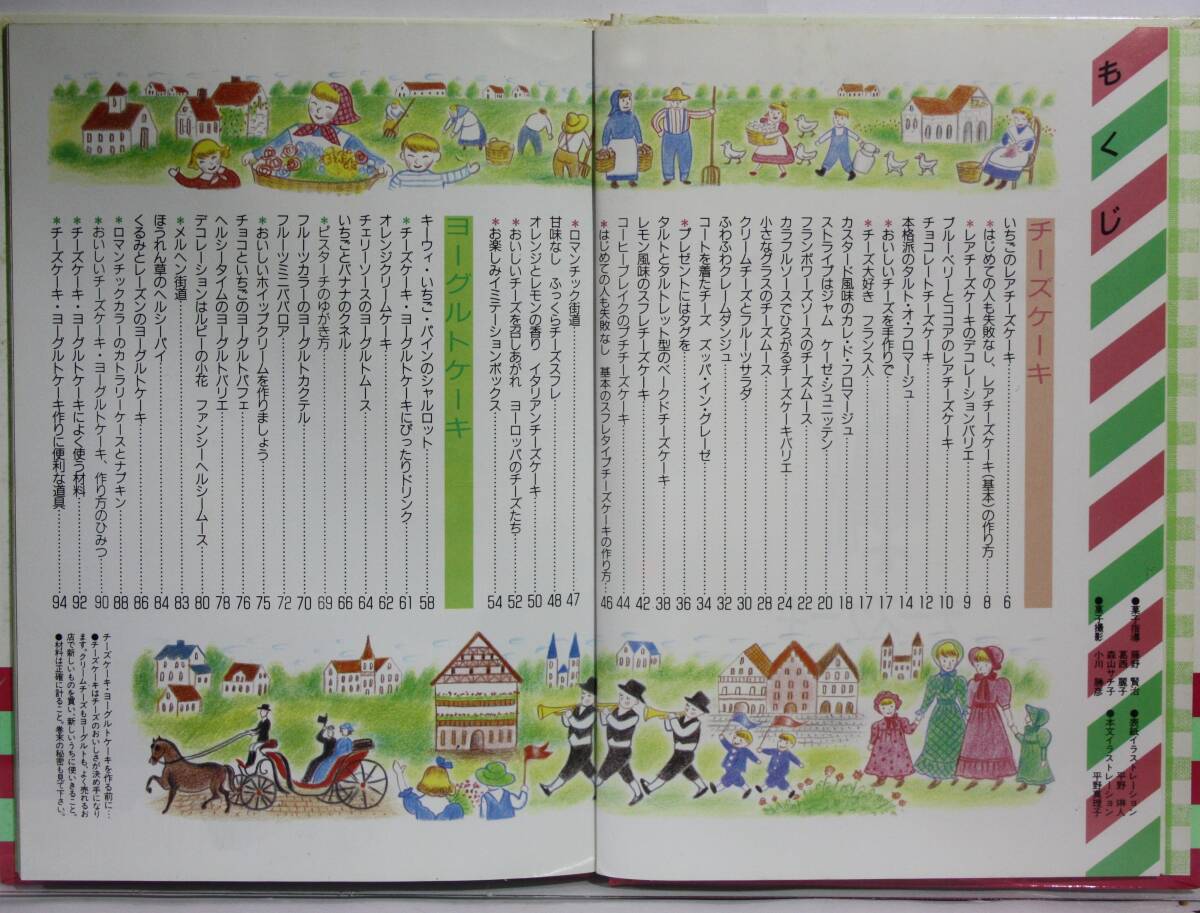 もくじ
チーズケーキ
いちごのレアチーズケーキ……6
*はじめての人も失敗なし、レアチーズケーキ(基本)の作り方……8
*レアチーズケーキのデコレーションバリエ……9
ブルーベリーとココアのレアチーズケーキ……10
チョコレートチーズケーキ……12
本格派のタルト・オ・フロマージュ……14
*おいしいチーズを手作りで……17
*チーズ大好き フランス人……17
カスタード風味のガレ・ド・フロマージュ……18
ストライプはジャム ケーゼシュニッテン……20
フランボワーズソースのチーズムース……22
カラフルソースでひろがるチーズケーキバリエ……24
小さなグラスのチーズムース……28
クリームチーズとフルーツサラダ……30
ふわふわクレームダンジュ……32
コートを着たチーズ ズッパ・イン・グレーゼ……34
*プレゼントにはタグを……36
タルトとタルトレット型のベークドチーズケーキ……38
レモン風味のスフレチーズケーキ……42
コーヒーブレイクのプチチーズケーキ……44
*はじめての人も失敗なし 基本のスフレタイプチーズケーキの作り方……46
*ロマンチック街道……47
甘味なし ふっくらチーズスフレ……48
オレンジとレモンの香り イタリアンチーズケーキ……50
*おいしいチーズを召しあがれ ヨーロッパのチーズたち……52
*お楽しみイミテーションボックス……54
ヨーグルトケーキ
キーウィ・いちご・パインのシャルロット……58
*チーズケーキ・ヨーグルトケーキにぴったりドリンク……61
オレンジクリームケーキ……62
チェリーソースのヨーグルトムース……64
いちごとバナナのクネル……66
*ピスターチのゆがき方……69
フルーツカラーのヨーグルトカクテル……70
フルーツミニババロア……72
*おいしいホイップクリームを作りましょう……75
チョコといちごのヨーグルトパフェ……76
ヘルシータイムのヨーグルトバリエ……78
デコレーションはルビーの小花 ファンシーヘルシームース……80
*メルヘン街道……83
ほうれん草のヘルシーパイ……84
くるみとレーズンのヨーグルトケーキ……86
*ロマンチックカラーのカトラリーケースとナプキン……88
*おいしいチーズケーキ・ヨーグルトケーキ、作り方のひみつ……90
*チーズケーキ・ヨーグルトケーキによく使う材料……92
*チーズケーキ・ヨーグルトケーキ作りに便利な道具……94
●菓子指導 藤野 賢治
葛西 麗子
森山サチ子
●菓子撮影 小川 勝彦
●表紙イラストレーション
平野 琳人
●本文イラストレーション
平野真理子
チーズケーキ・ヨーグルトケーキを作る前に…
●チーズケーキはチーズのおいしさが決め手になり
ます。クリームチーズもヨーグルトも、よく売れるお
店で新しいものを買い、新しいうちに使いきること。
●材料は正確に計ること。巻末の秘密も見て下さい。